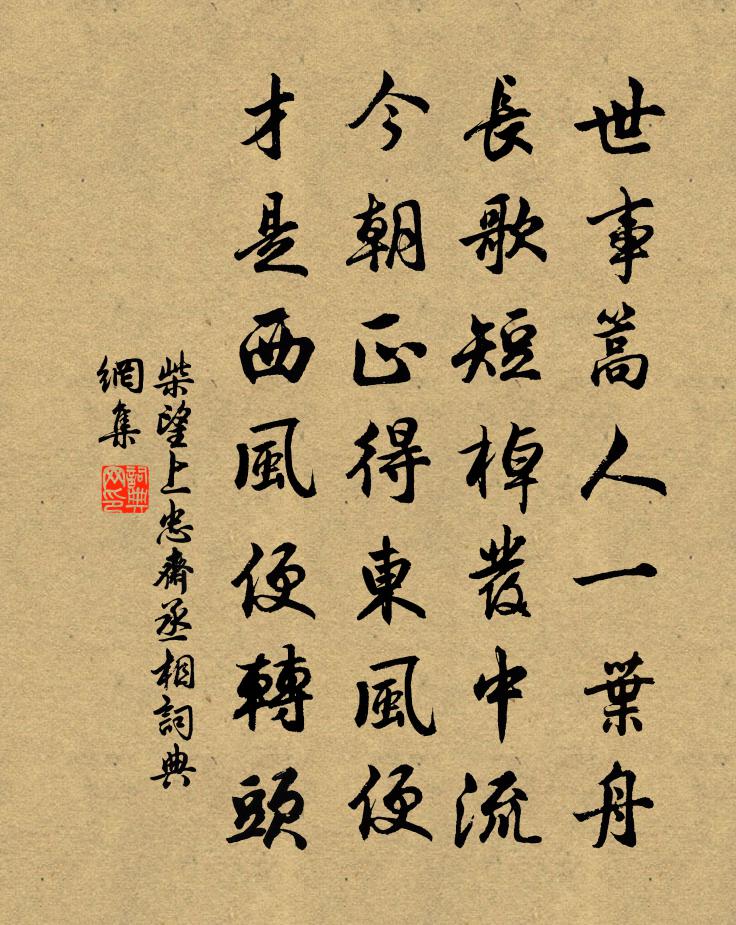 世事蒿人一葉舟
長歌短棹發中流
今朝正得東風便
才是西風便轉頭
柴望上忠齋丞相詞典
網集
詞典
网印